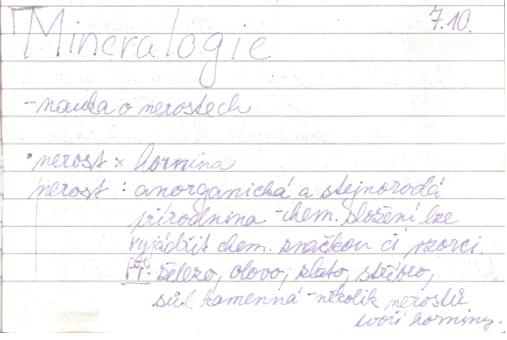 7.10.
Mineralogie
-nauka o nerostech
• nerost × hornina
nerost: anorganická a stejnorodá
přírodnina - chem. složení lze
vyjádřit chem. značkou či vzorci.
Př: železo, olovo, zlato, stříbro,
sůl kamenná - několik nerostů
tvoří horniny.